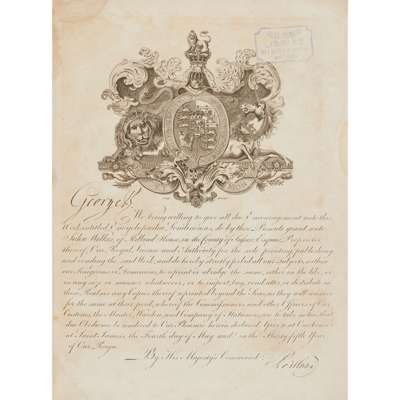 George R
We being willing to give all due Encouragement unto this
Work entitled Encyclopædia Londinensis, do by these Presents grant unto
John Wilkes, of Milland House, in the County of Sussex, Esquire, Proprietor
thereof, Our Royal License and Authority for the sole printing, publishing
and vending the said Work, and do hereby strictly forbid all our Subjects within
our Kingdoms & Dominions, to reprint or abridge the same, either in the like, or
in any size or manner whatsoever, or to import, buy, vend, utter, or distribute in
these Realms any Copies thereof reprinted beyond the Seas, as they will answer
for the same at their peril, whereof the Commissioners and other Officers of Our
Customs, the Master, Wardens and Company of Stationers, are to take notice, that
due Obedience be rendered to Our Pleasure herein declared. Given at Our Court
at Saint James's the Fourth day of May and in the Thirty fifth Year
of Our Reign.
By His Majesty's Command
Portland